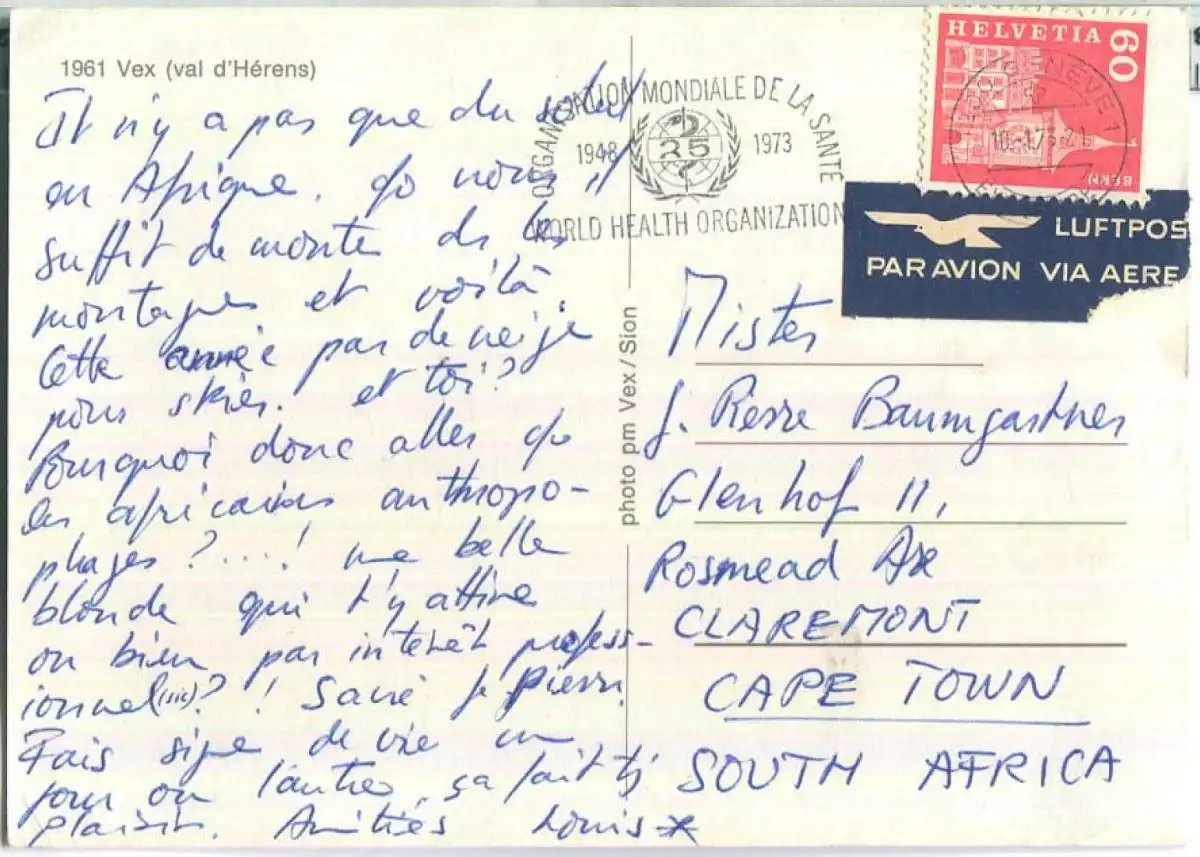 1961 Vex (val d'Hérens)
Il n'y a pas que du soleil
en Afrique. Ço nous, il
suffit de monter ds les
montagnes et voilà.
Cette année pas de neige
pour skier. et toi?
Pourquoi donc aller ço
les africains anthropo-
phages?...! une belle
blonde qui t'y attire
ou bien par intérêt profess-
ionnel (sic)?! Sacré J. Pierre.
Fais signe de vie un
jour ou l'autre, ça fait tj
plaisir. Amitiés Louis
ORGANISATION MONDIALE DE LA SANTE
1948 25 1973
WORLD HEALTH ORGANIZATION
HELVETIA 60
BERN
GENÈVE 1
LUFTPOS
PAR AVION VIA AERE
photo pm Vex/Sion
Mister
J. Pierre Baumgartner
Glenhof 11,
Rosmead Ave
CLAREMONT
CAPE TOWN
SOUTH AFRICA